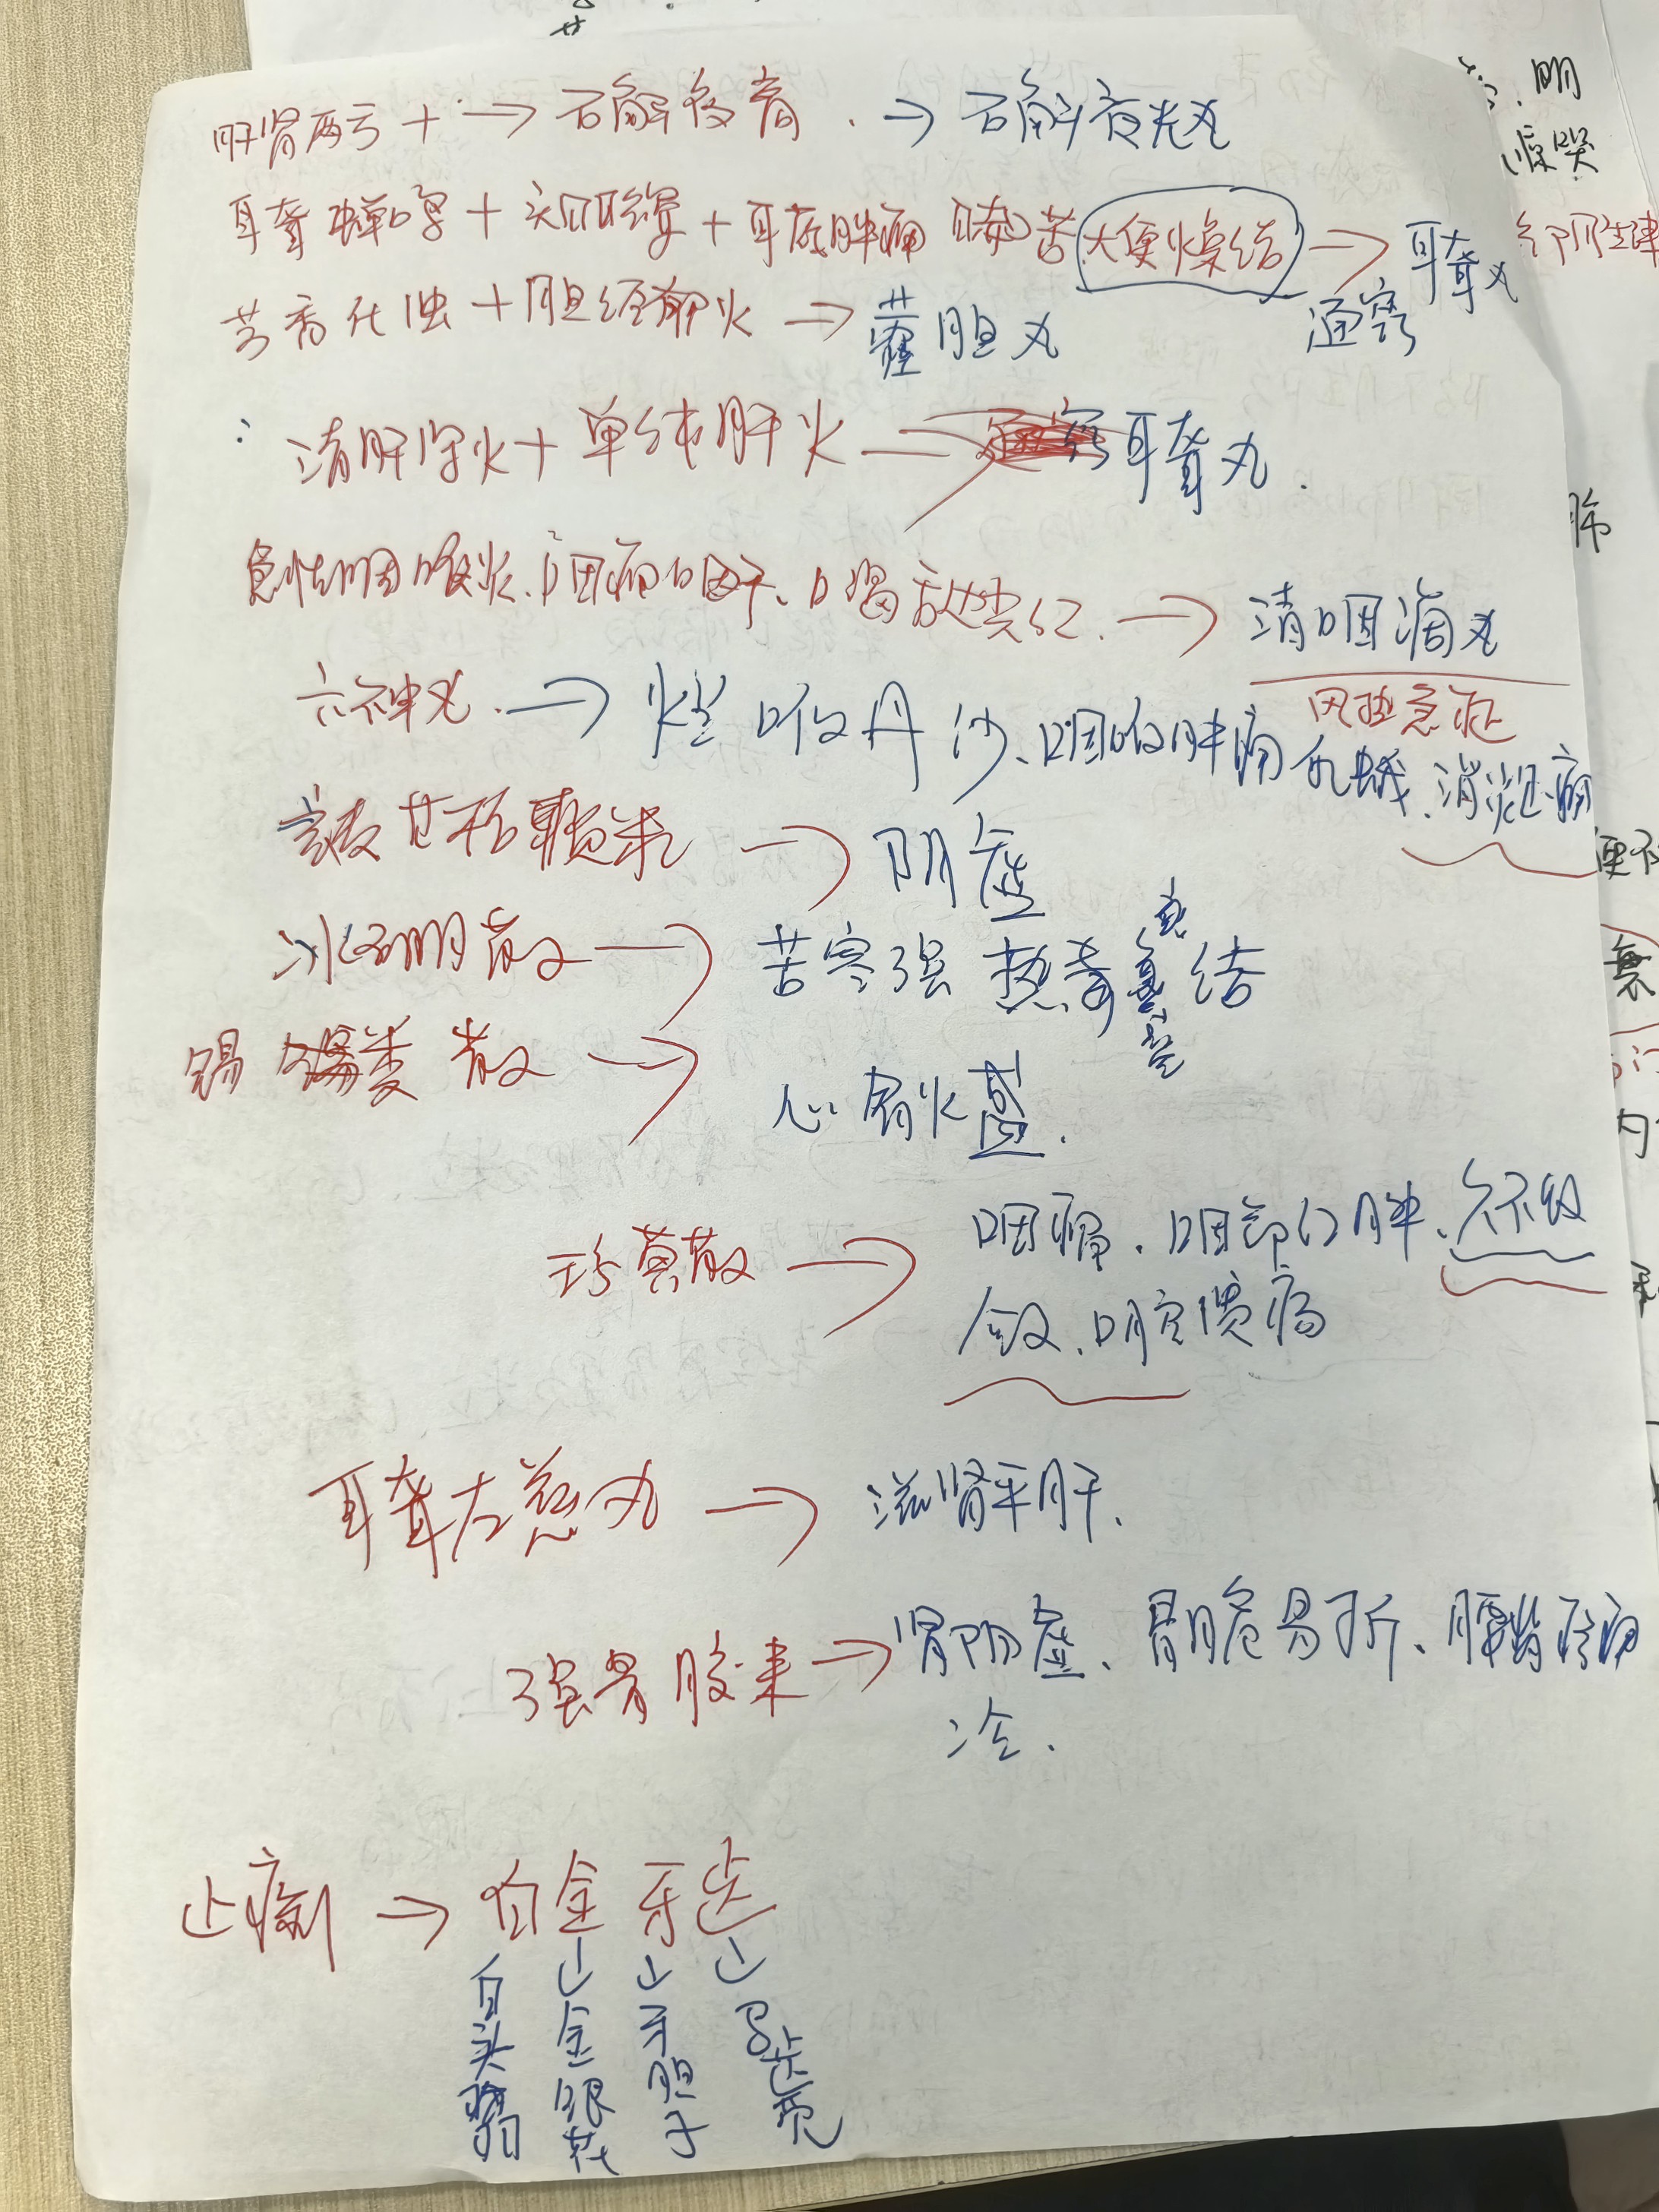 肝肾两亏+→石斛夜 . →石斛夜光丸
耳聋蝉鸣+头目眩晕+耳底肿痛 口苦 大便燥结→耳聋丸
通窍
芳香化浊+胆经郁火→藿胆丸
清肝泻火+单纯肝火→耳聋丸.
急性咽喉炎、咽痛咽干、口渴 红.→清咽滴丸
风热急症
六神丸.→烂喉丹沙、咽喉肿痛 乳蛾、消炎止痛
玄麦甘桔颗粒→阴虚
冰硼散→苦寒强 热毒 结
锡 类散→心胃火盛.
珍黄散→咽痛、咽部红肿、久不收
敛、口腔溃疡
耳聋左慈丸→滋肾平肝、
强骨胶囊→肾阳虚、骨脆易折、腰背 痛
冷.
止痢→白金牙
白头翁
↓金银花
↓牙胆子
↓马齿苋
明
肺
内